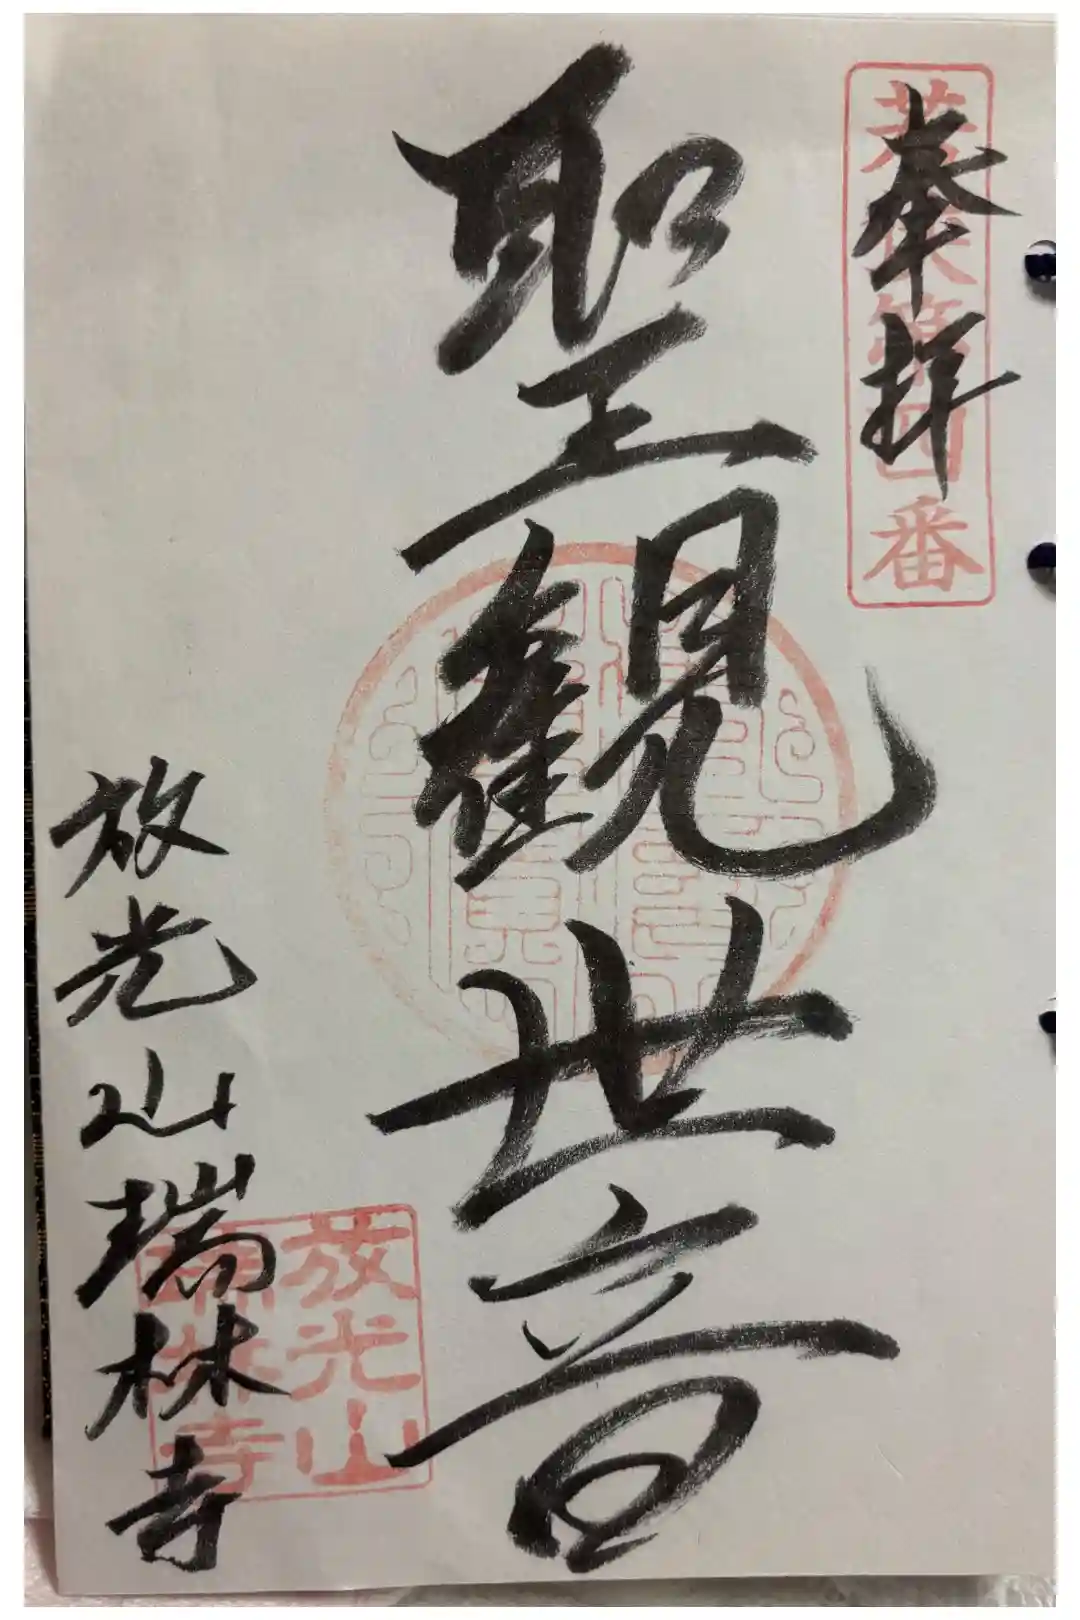 奉拝
第四番
聖觀世音
放光山瑞林寺
放光山
瑞林寺